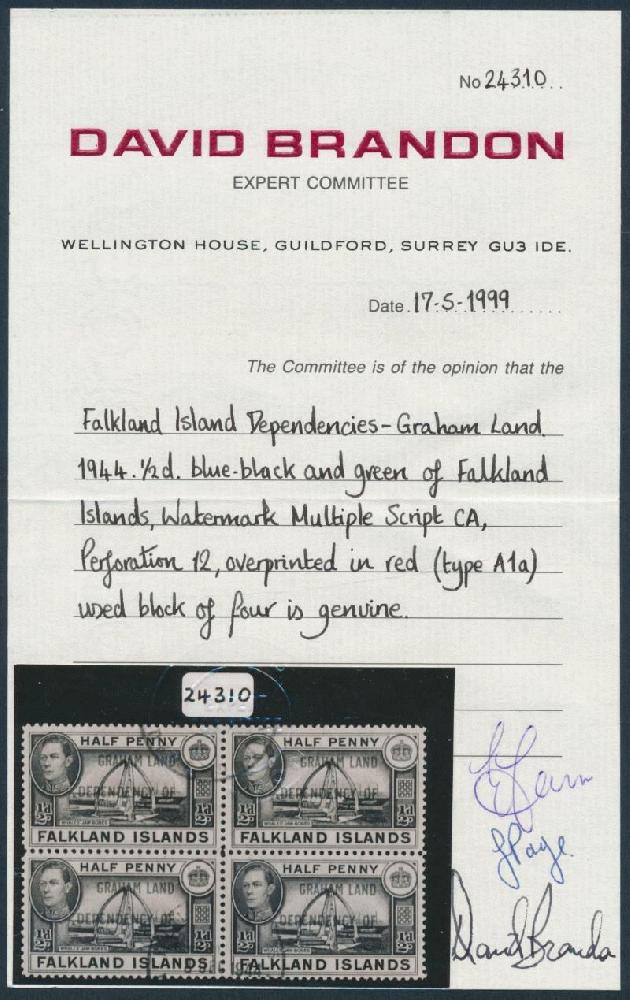 No 24310
DAVID BRANDON
EXPERT COMMITTEE
WELLINGTON HOUSE, GUILDFORD, SURREY GU3 IDE.
Date 17-5-1999
The Committee is of the opinion that the
Falkland Island Dependencies-Graham Land
1944. ½d. blue-black and green of Falkland
Islands, Watermark Multiple Script CA,
Perforation 12, overprinted in red (type A1a)
used block of four is genuine.
24310
HALF PENNY HALF PENNY
GRAHAM LAND GRAHAM LAND
DEPENDENCY OF DEPENDENCY OF
½d ½d ½d ½d
WHALES' JAW BONES WHALES' JAW BONES
FALKLAND ISLANDS FALKLAND ISLANDS
HALF PENNY HALF PENNY
GRAHAM LAND GRAHAM LAND
DEPENDENCY OF DEPENDENCY OF
½d ½d ½d ½d
WHALES' JAW BONES WHALES' JAW BONES
FALKLAND ISLANDS FALKLAND ISLANDS
David Brandon